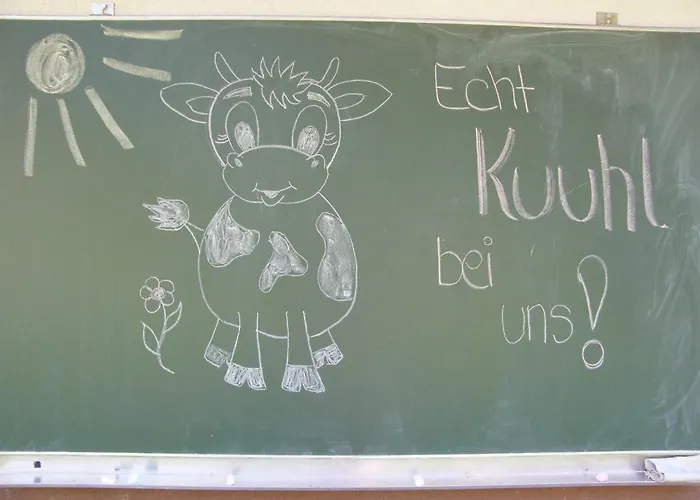 Echt
Kuuhl
bei
uns!